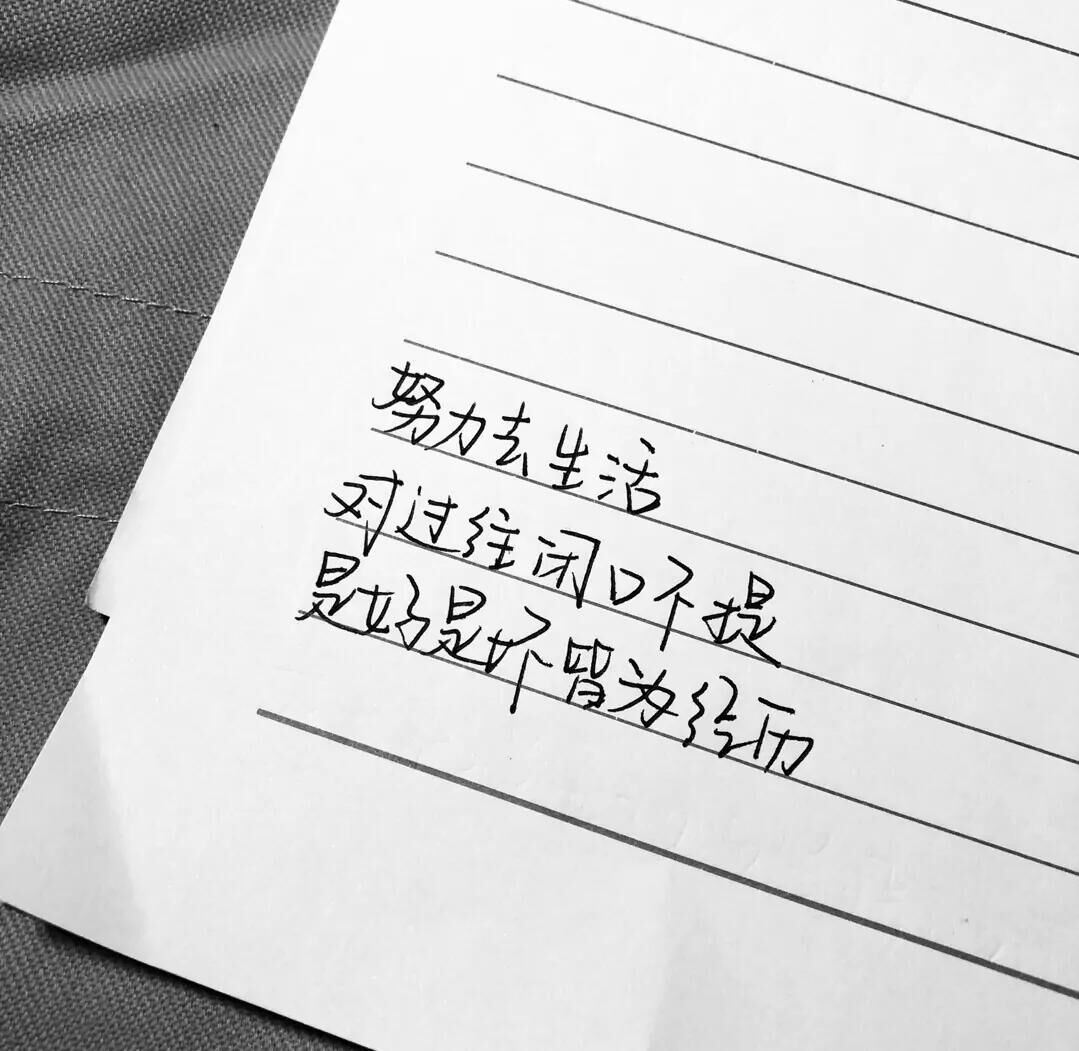 努力去生活
对过往闭口不提
是好是坏皆为经历